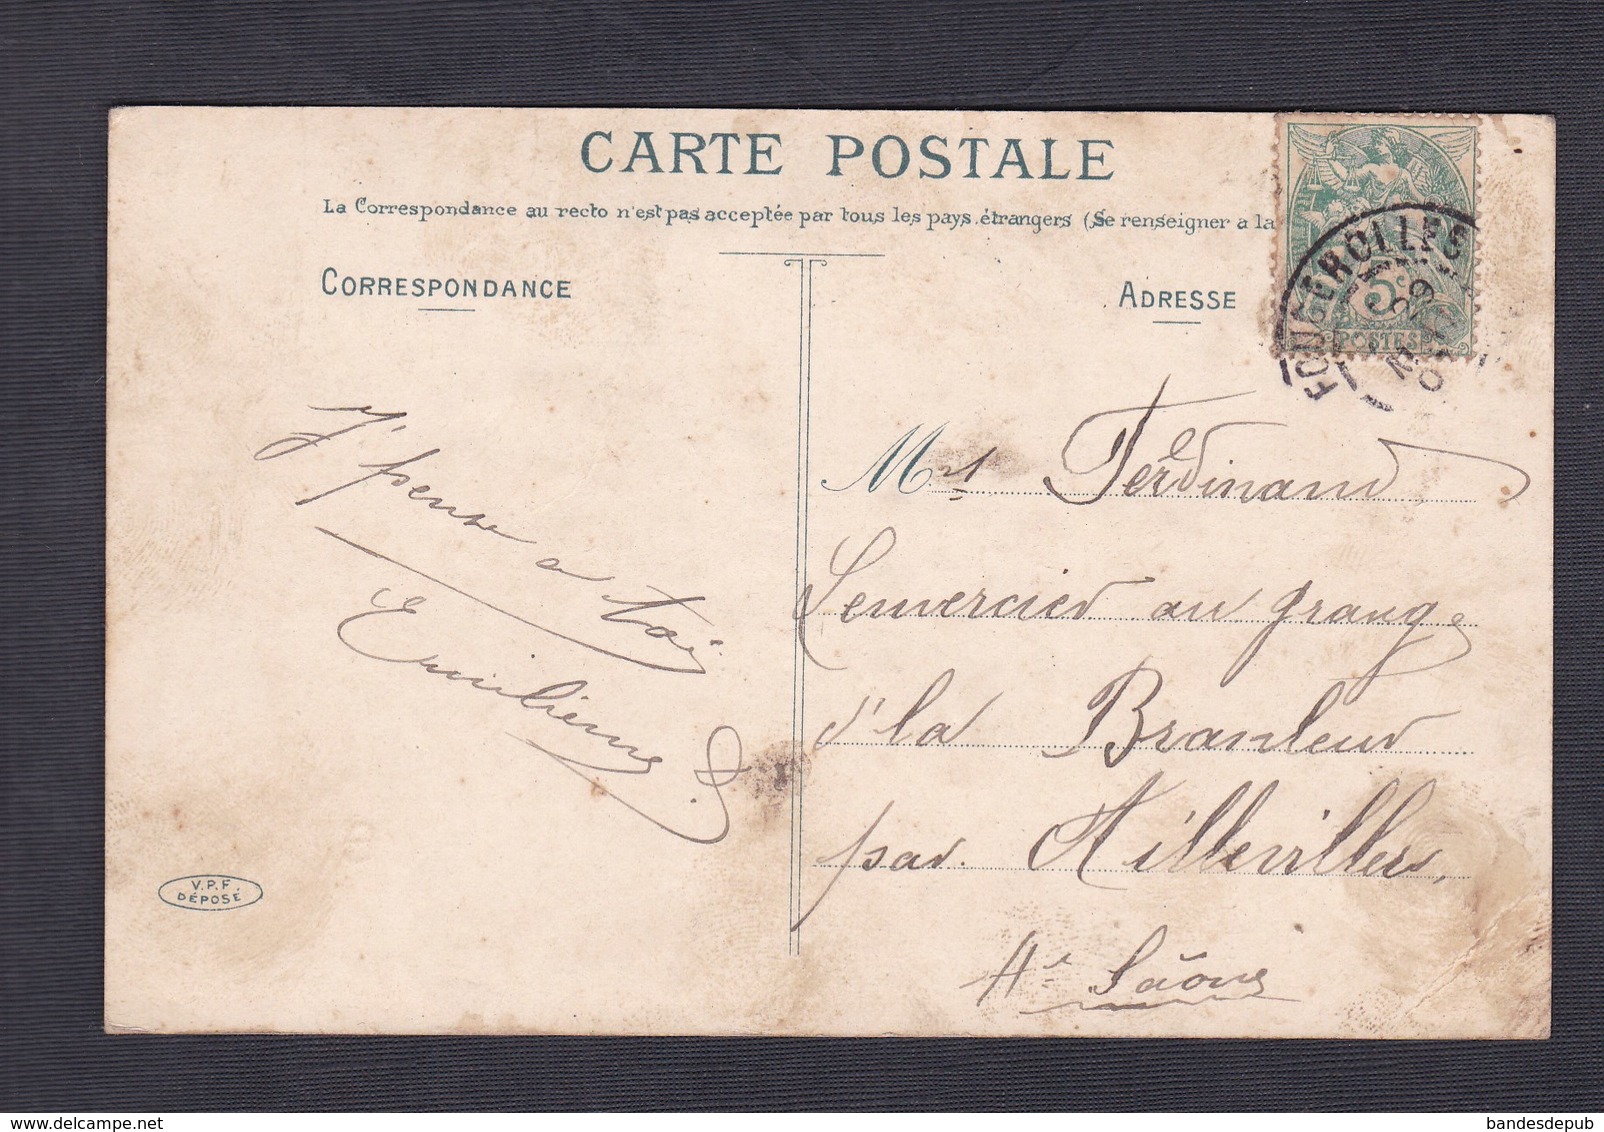 CARTE POSTALE
La Correspondance au recto n'est pas acceptée par tous les pays étrangers (Se renseigner a la
CORRESPONDANCE
ADRESSE
FOUGEROLLES
29
5c
POSTES
J'pense a toi
Emilienne
V.P.F.
DÉPOSÉ
M Ferdinand
Lemercier au grange
d'la Branleur
par Aillevillers,
Hte Saône
delcampe.net
bandesdepub